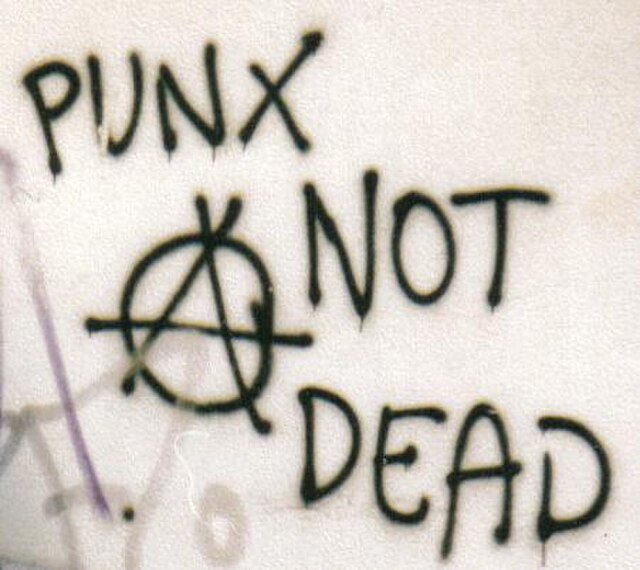 PUNX
NOT
DEAD